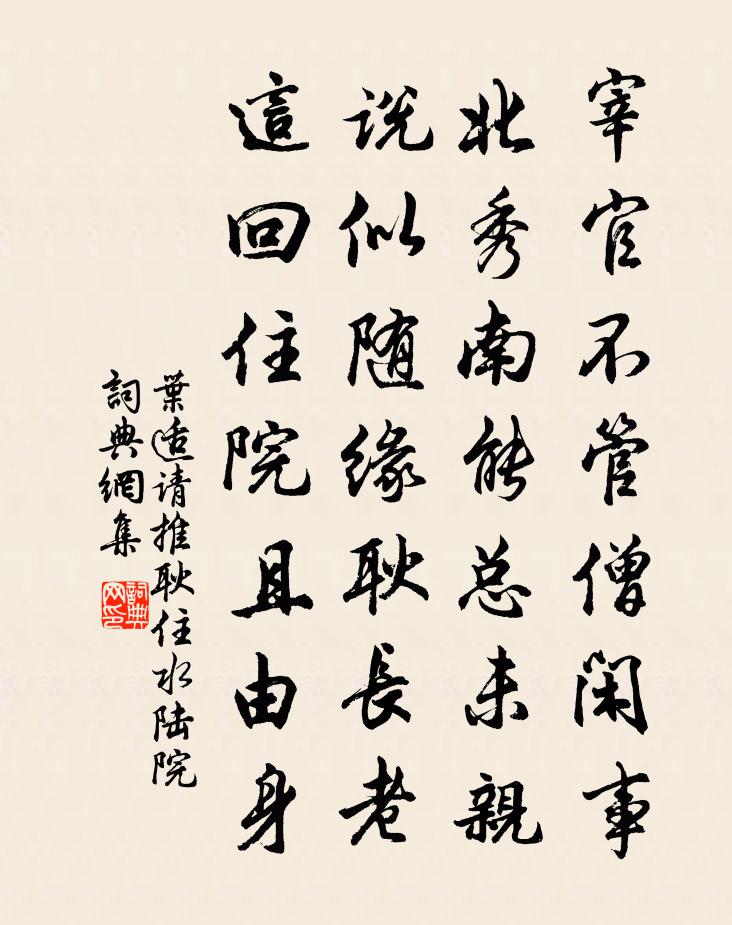 宰官不管僧閑事
北秀南能总未親
说似随缘耿長老
這回住院且由身
葉适请推耿住水陆院
詞典網集
詞典网印